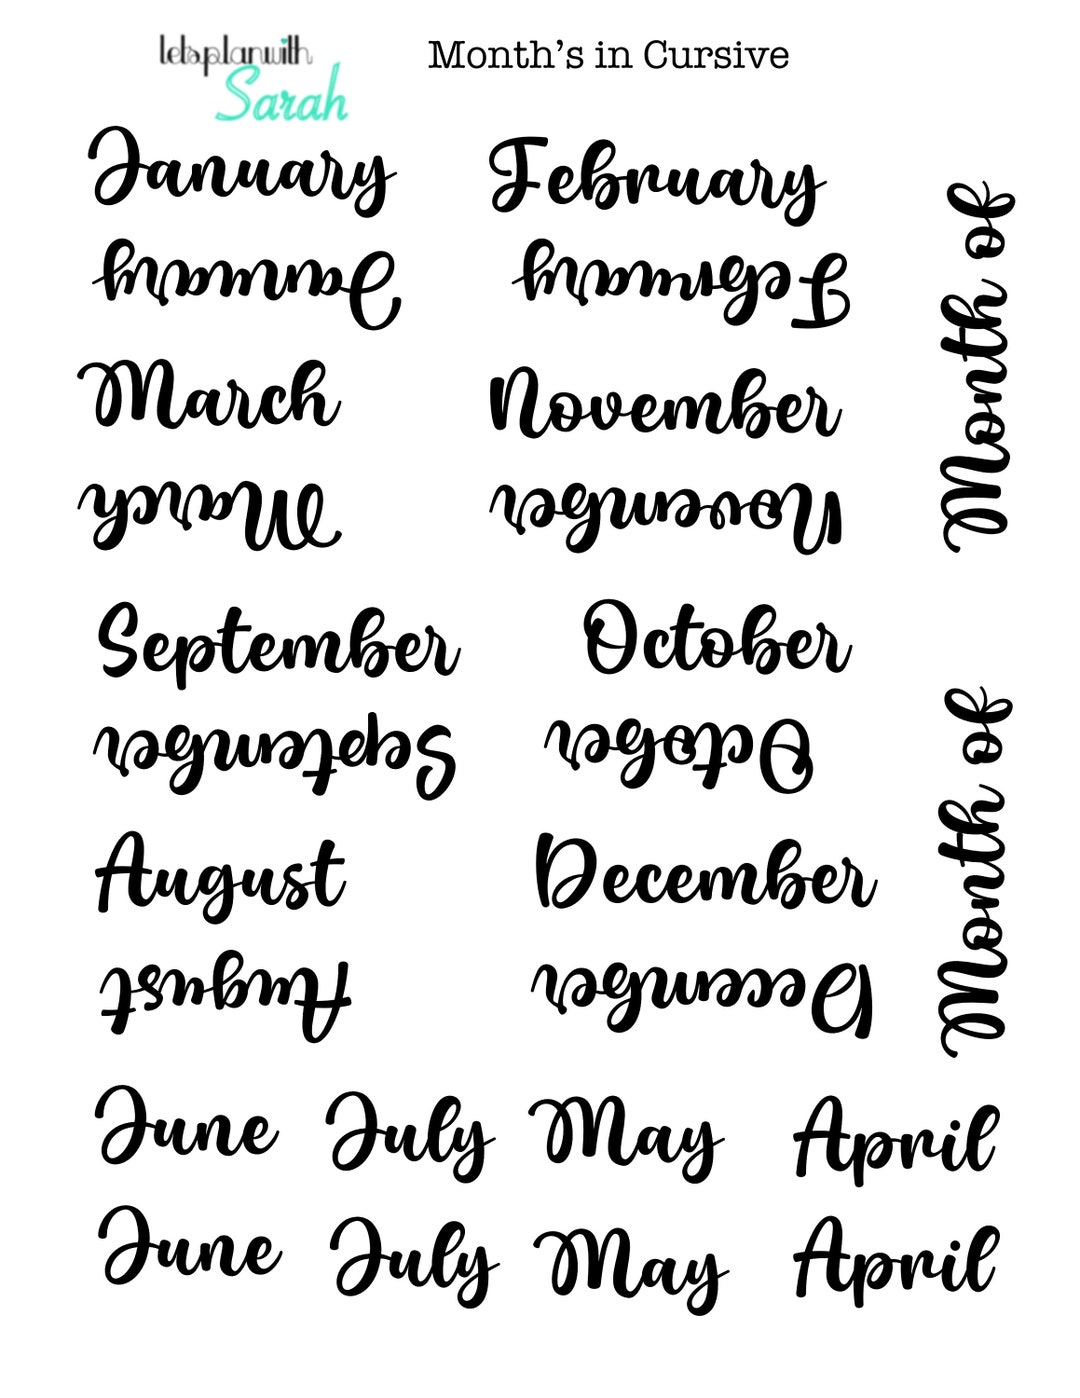 let's plan with
Sarah
Month's in Cursive
January February
January February
March November
March November
September October
September October
August December
August December
June July May April
June July May April
Month of
Month of